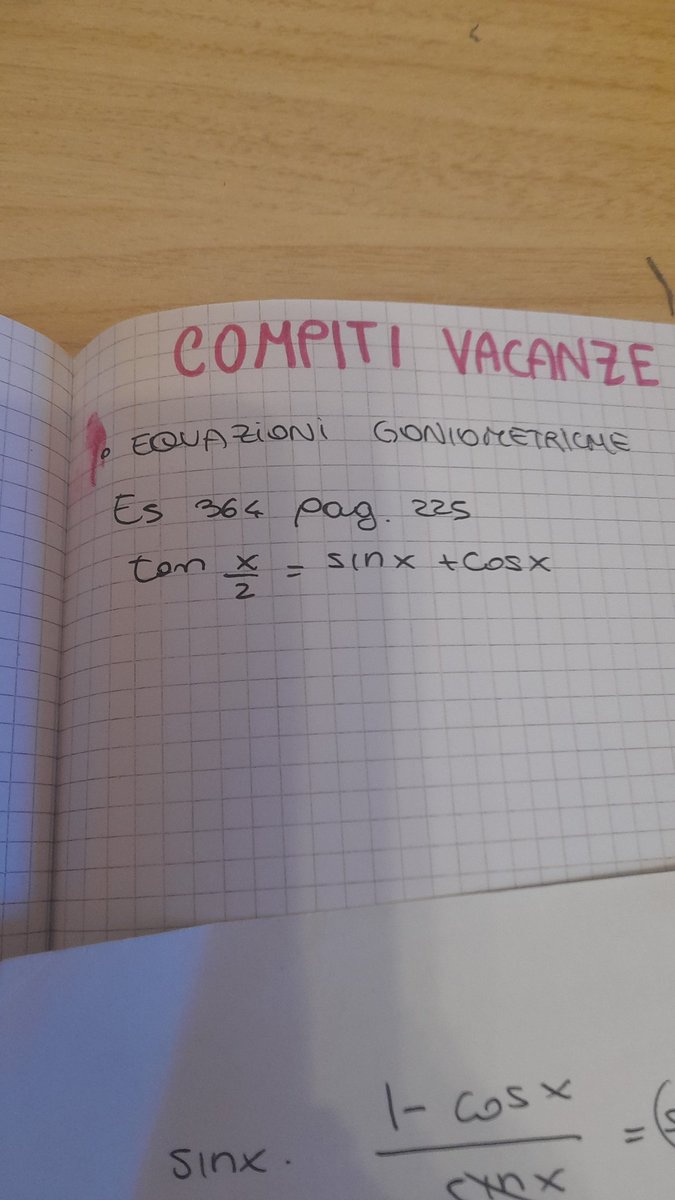 COMPITI VACANZE
• EQUAZIONI GONIOMETRICHE
Es 364 pag. 225
tan x/2 = sinx + cosx
sinx · 1 - cosx / synx = (